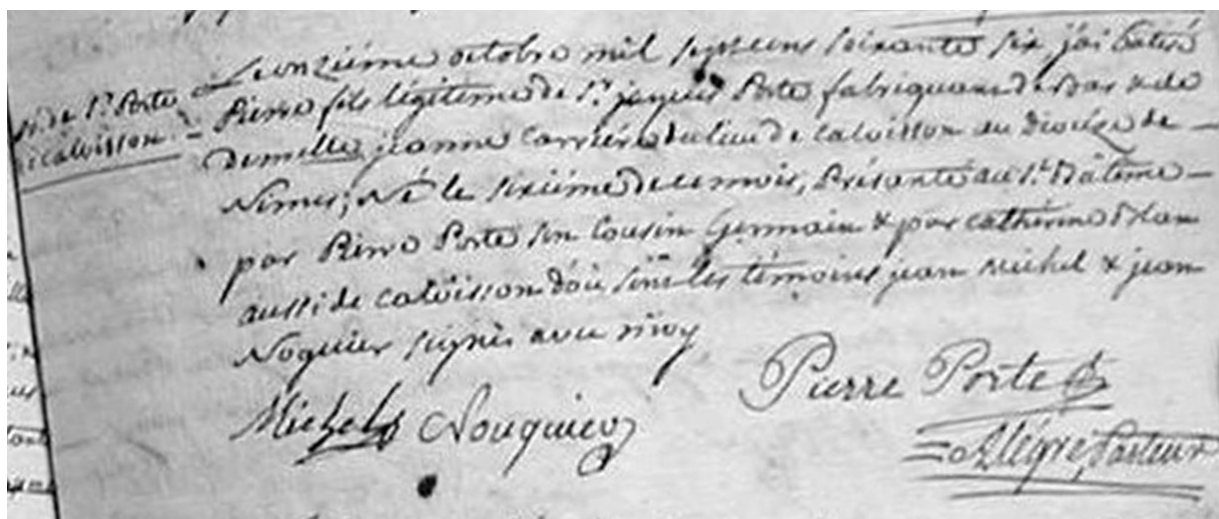 Le onzième octobre mil septcens soixante six j'ai batisé
Pierre fils légitime de Sr. jacques Porte fabriquant de bas & de
demelle jeanne Carrière du lieu de Calvisson au diocèze de
Nimes; Né le sixième de ce mois, Présenté au St. Bâteme
par Pierre Porte son Cousin Germain & par Catherine
aussi de Calvisson d'où sont les témoins jean Michel & jean
Noguier signés avec moy
de Sr. Porte
Calvisson
Pierre Porte
Michel Nouguier
Alègre, Pasteur